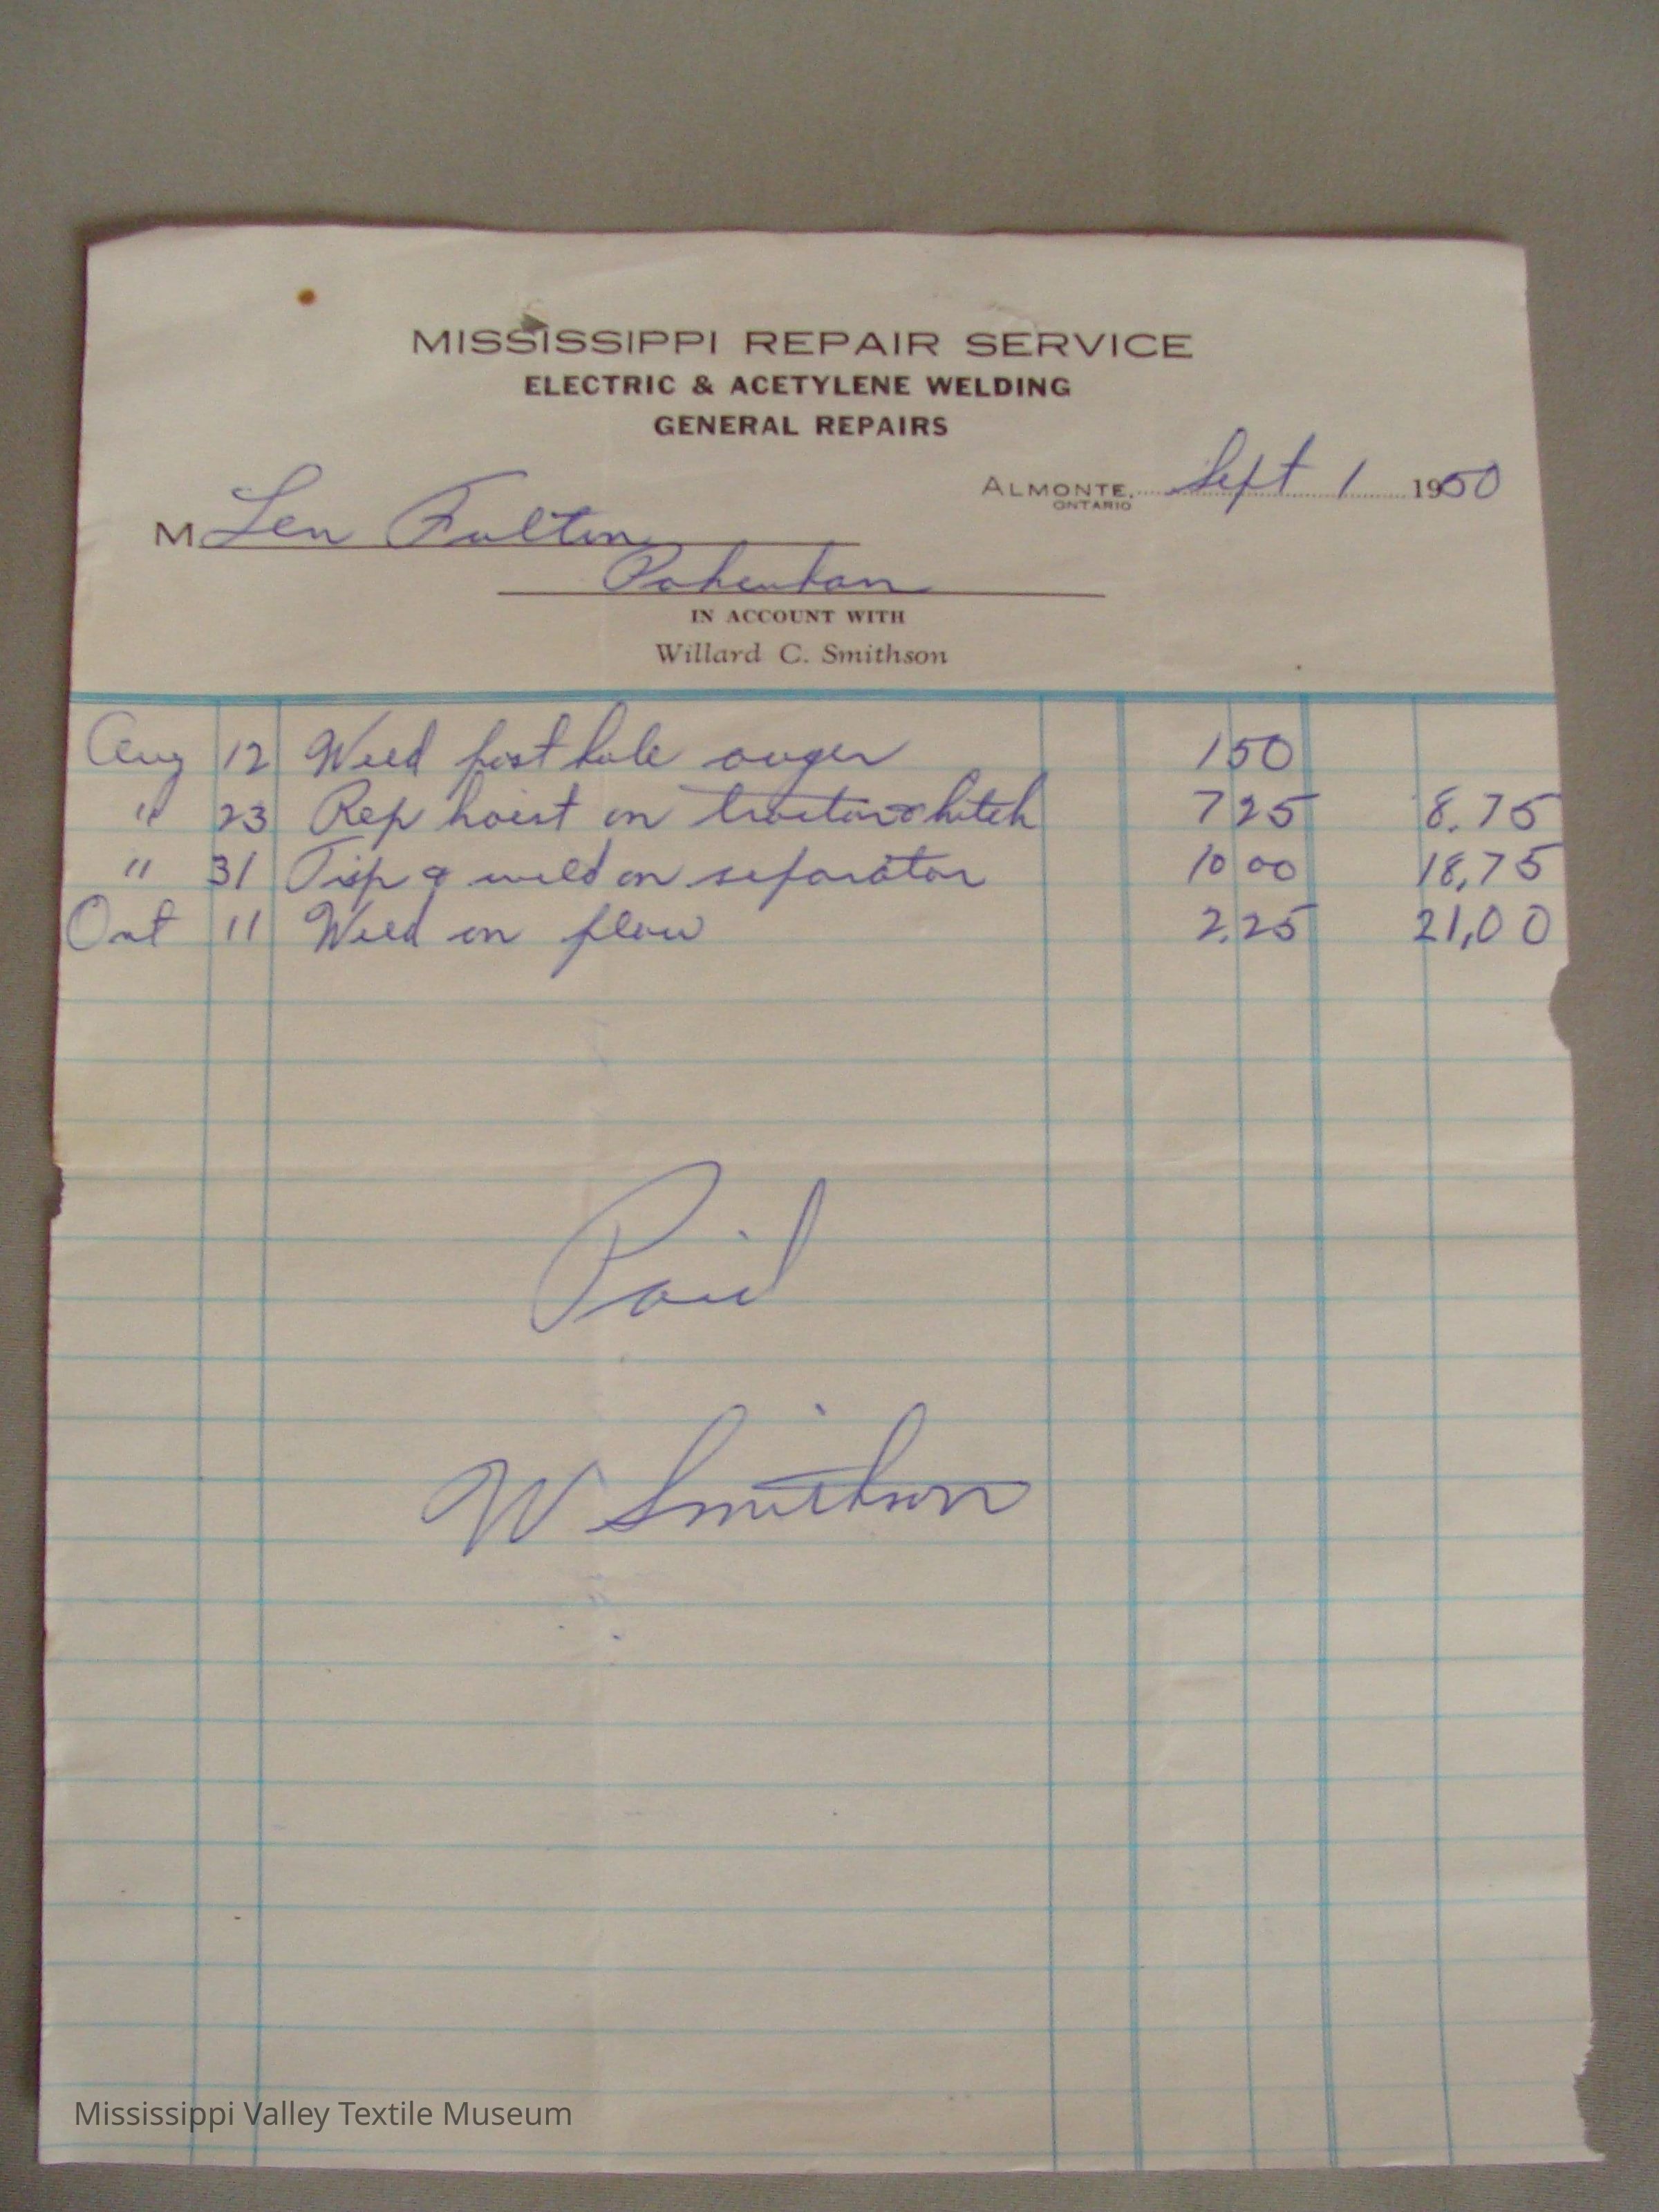 MISSISSIPPI REPAIR SERVICE
ELECTRIC & ACETYLENE WELDING
GENERAL REPAIRS
ALMONTE, ONTARIO Sept 1 1950
M Len Fulton
Pakenham
IN ACCOUNT WITH
Willard C. Smithson
Aug 12 Weld post hole auger 1 50
" 23 Rep hoist on tractor & hitch 7 25 8.75
" 31 & weld on separator 10 00 18,75
Oct 11 Weld on plow 2.25 21,00
Paid
W Smithson
Mississippi Valley Textile Museum